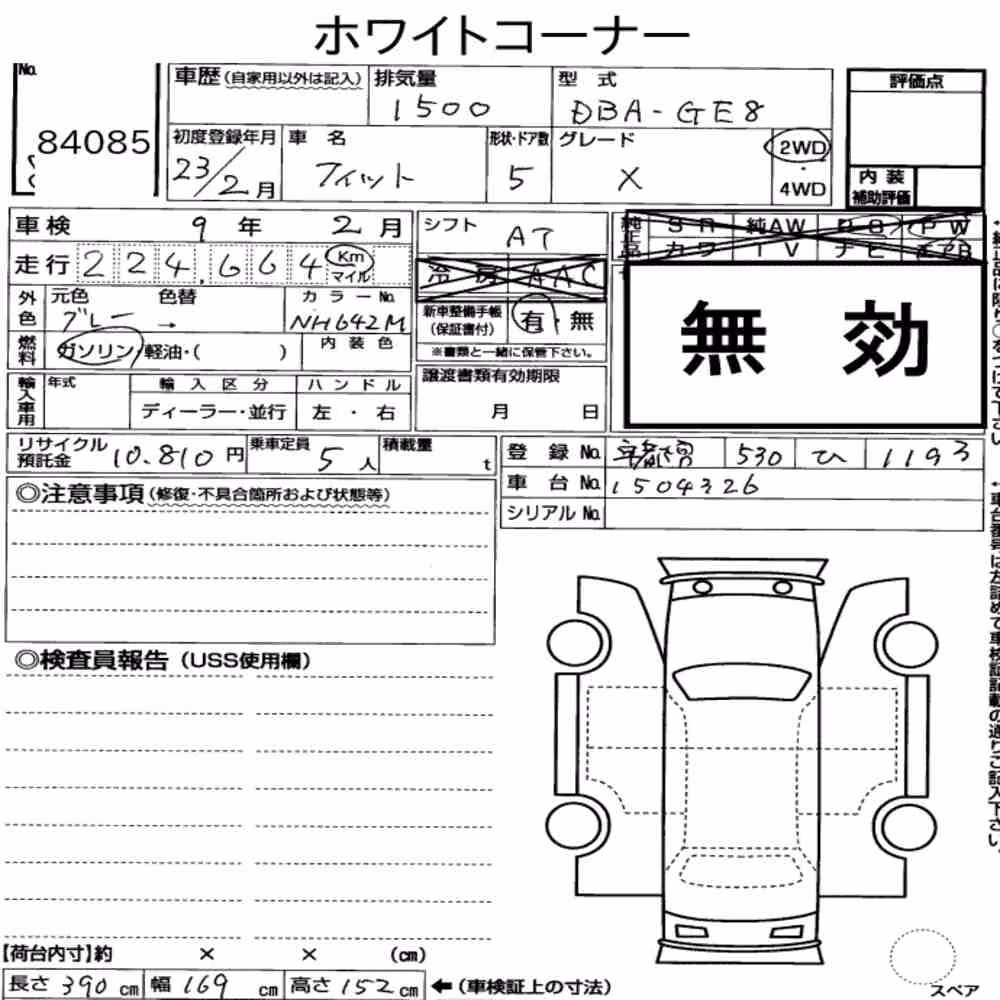 ホワイトコーナー
No. 84085
車歴 (自家用以外は記入) 排気量 1500 型式 DBA-GE8
評価点
初度登録年月 23/2月 車名 フィット 形状・ドア数 5 グレード X 2WD・4WD
内装補助評価
車検 9年 2月 シフト AT
純正品 SR 純AW PS PW
カワ TV ナビ エアB
走行 224,664 Km マイル
冷房 AAC
無効
外色 元色 グレー 色替 → カラーNo. NH642M
新車整備手帳 (保証書付) 有・無
※書類と一緒に保管下さい。
燃料 ガソリン・軽油・( ) 内装色
輸入車用 年式 輸入区分 ディーラー・並行 ハンドル 左・右
譲渡書類有効期限 月 日
リサイクル預託金 10.810円 乗車定員 5人 積載量 t
登録No. 宇都宮 530 ひ 1193
車台No. 1504326
シリアルNo.
◎注意事項 (修復・不具合箇所および状態等)
◎検査員報告 (USS使用欄)
【荷台内寸】約 × × (cm)
長さ 390 cm 幅 169 cm 高さ 152 cm ←(車検証上の寸法)
スペア
↑車台番号は左詰めで車検証記載の通りご記入下さい。